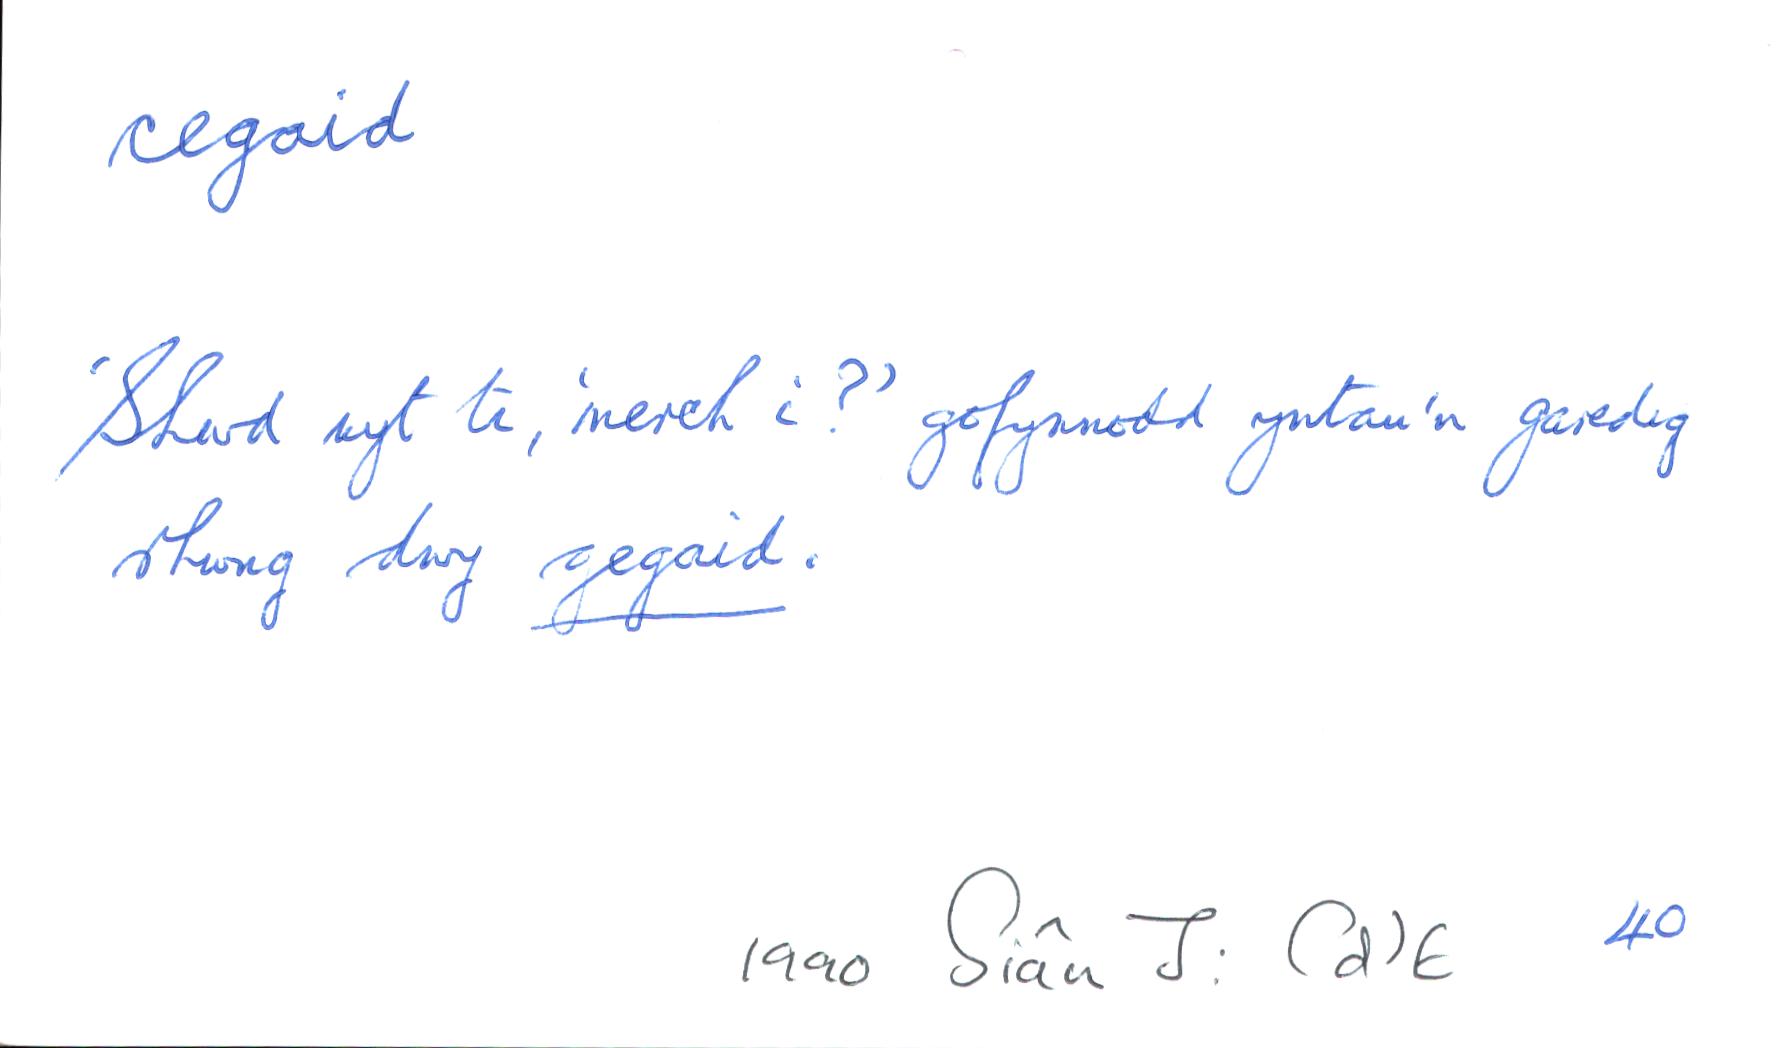 cegaid
'Shwd wyt ti, 'merch i?' gofynnodd yntau'n garedig
rhwng dwy gegaid.
1990 Siân J: (d)E 40